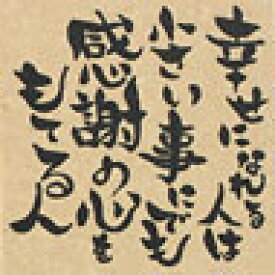 幸せになれる
人は
小さい事にでも
感謝の心を
もてる人